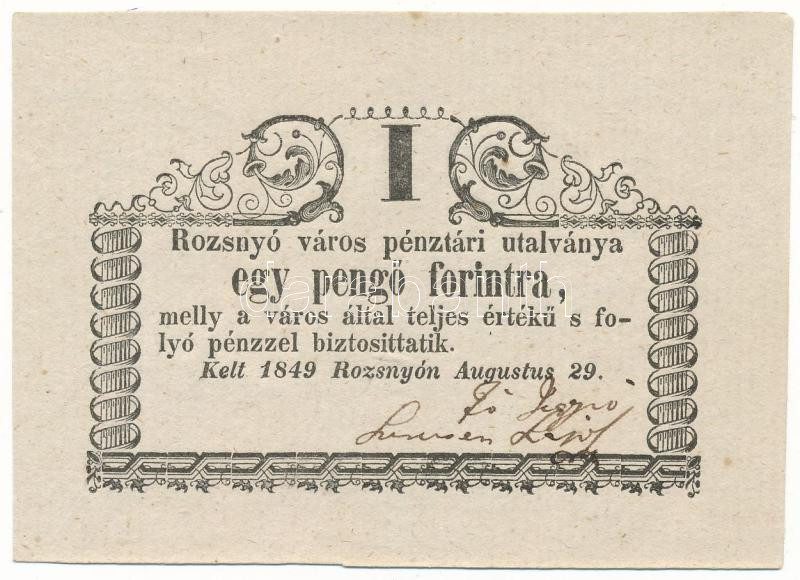 I
Rozsnyó város pénztári utalványa
egy pengő forintra,
melly a város által teljes értékű s fo-
lyó pénzzel biztosittatik.
Kelt 1849 Rozsnyón Augustus 29.
darabanth